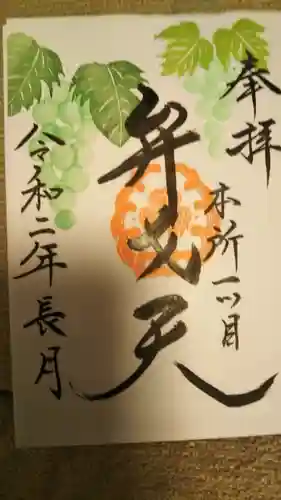 奉拝
本所一ツ目
弁才天
令和二年長月